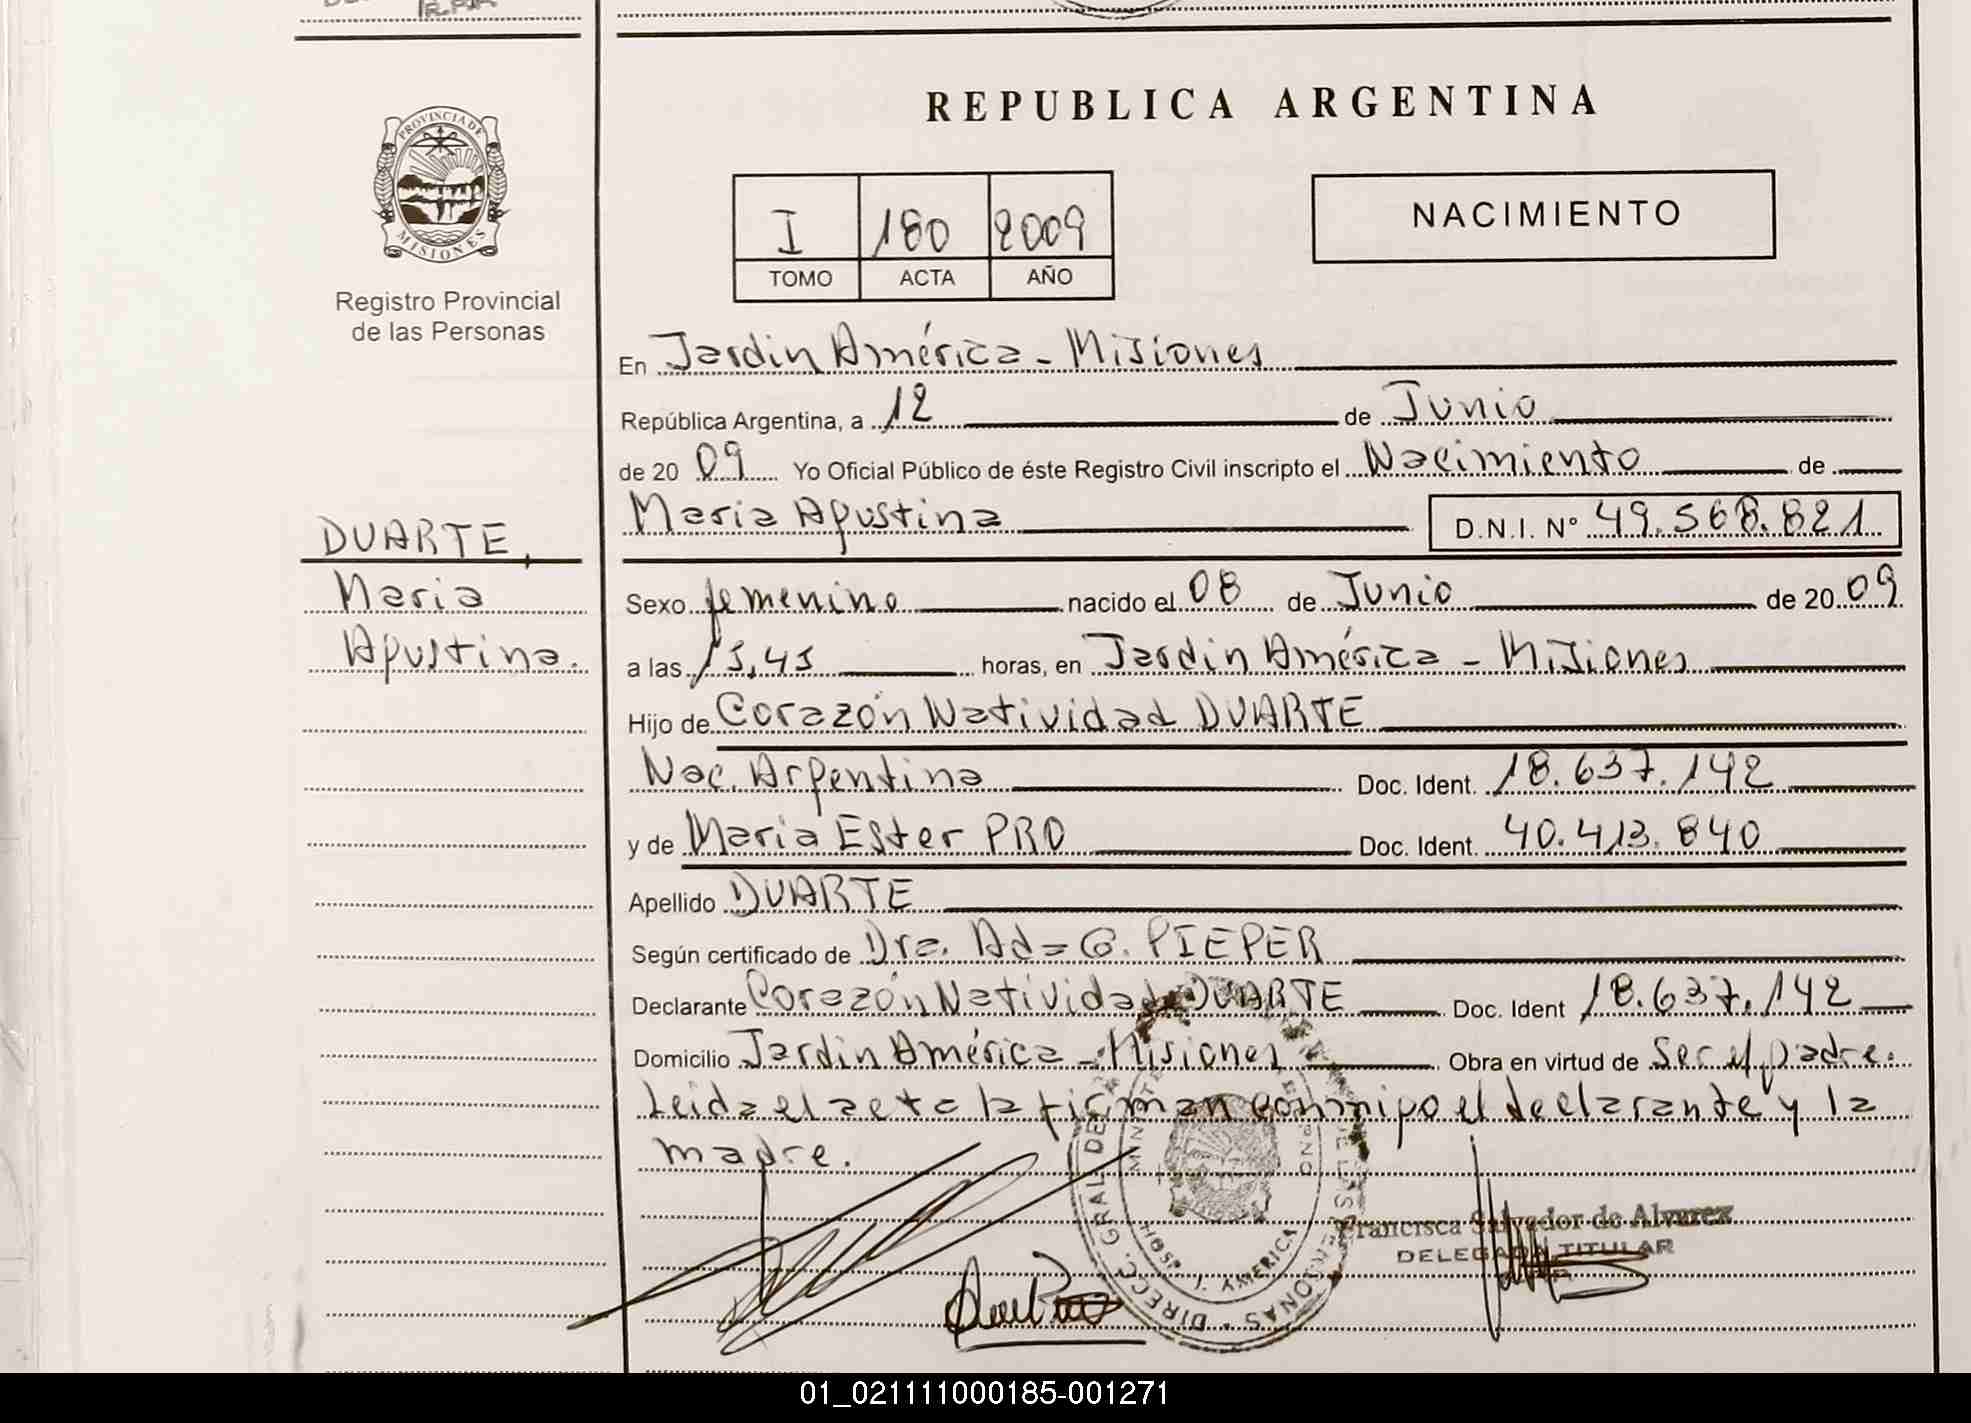 PROVINCIA DE
MISIONES
Registro Provincial
de las Personas
DUARTE,
Maria
Agustina.
REPUBLICA ARGENTINA
I 180 2009
TOMO ACTA AÑO
NACIMIENTO
En Jardin América - Misiones
República Argentina, a 12 de Junio
de 20 09 Yo Oficial Público de éste Registro Civil inscripto el Nacimiento de
Maria Agustina D.N.I. Nº 49.568.821
Sexo femenino nacido el 08 de Junio de 20 09
a las 13,45 horas, en Jardin América - Misiones
Hijo de Corazón Natividad DUARTE
Nac. Argentina Doc. Ident. 18.637.142
y de Maria Ester PRO Doc. Ident. 40.413.840
Apellido DUARTE
Según certificado de Dra. Ada G. PIEPER
Declarante Corazón Natividad DUARTE Doc. Ident 18.637.142
Domicilio Jardin América - Misiones Obra en virtud de Ser el padre.
Leida el acta la firman conmigo el declarante y la
madre.
Francisca Salvador de Alvarez
DELEGADA TITULAR
DIRECC. GRAL DE
HOSP. J. AMERICA
01_021111000185-001271